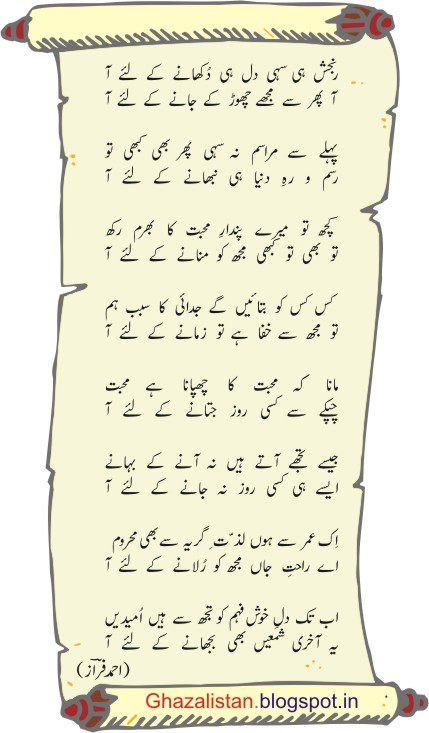 رنجش ہی سہی دل ہی دُکھانے کے لئے آ
آ پھر سے مجھے چھوڑ کے جانے کے لئے آ
پہلے سے مراسم نہ سہی پھر بھی کبھی تو
رسم و رہِ دنیا ہی نبھانے کے لئے آ
کچھ تو میرے پندارِ محبت کا بھرم رکھ
تو بھی تو کبھی مجھ کو منانے کے لئے آ
کس کس کو بتائیں گے جدائی کا سبب ہم
تو مجھ سے خفا ہے تو زمانے کے لئے آ
مانا کہ محبت کا چھپانا ہے محبت
چپکے سے کسی روز جتانے کے لئے آ
جیسے تجھے آتے ہیں نہ آنے کے بہانے
ایسے ہی کسی روز نہ جانے کے لئے آ
اِک عمر سے ہوں لذّتِ گریہ سے بھی محروم
اے راحتِ جاں مجھ کو رُلانے کے لئے آ
اب تک دلِ خوش فہم کو تجھ سے ہیں اُمیدیں
یہ آخری شمعیں بھی بجھانے کے لئے آ
(احمد فراز)
Ghazalistan.blogspot.in